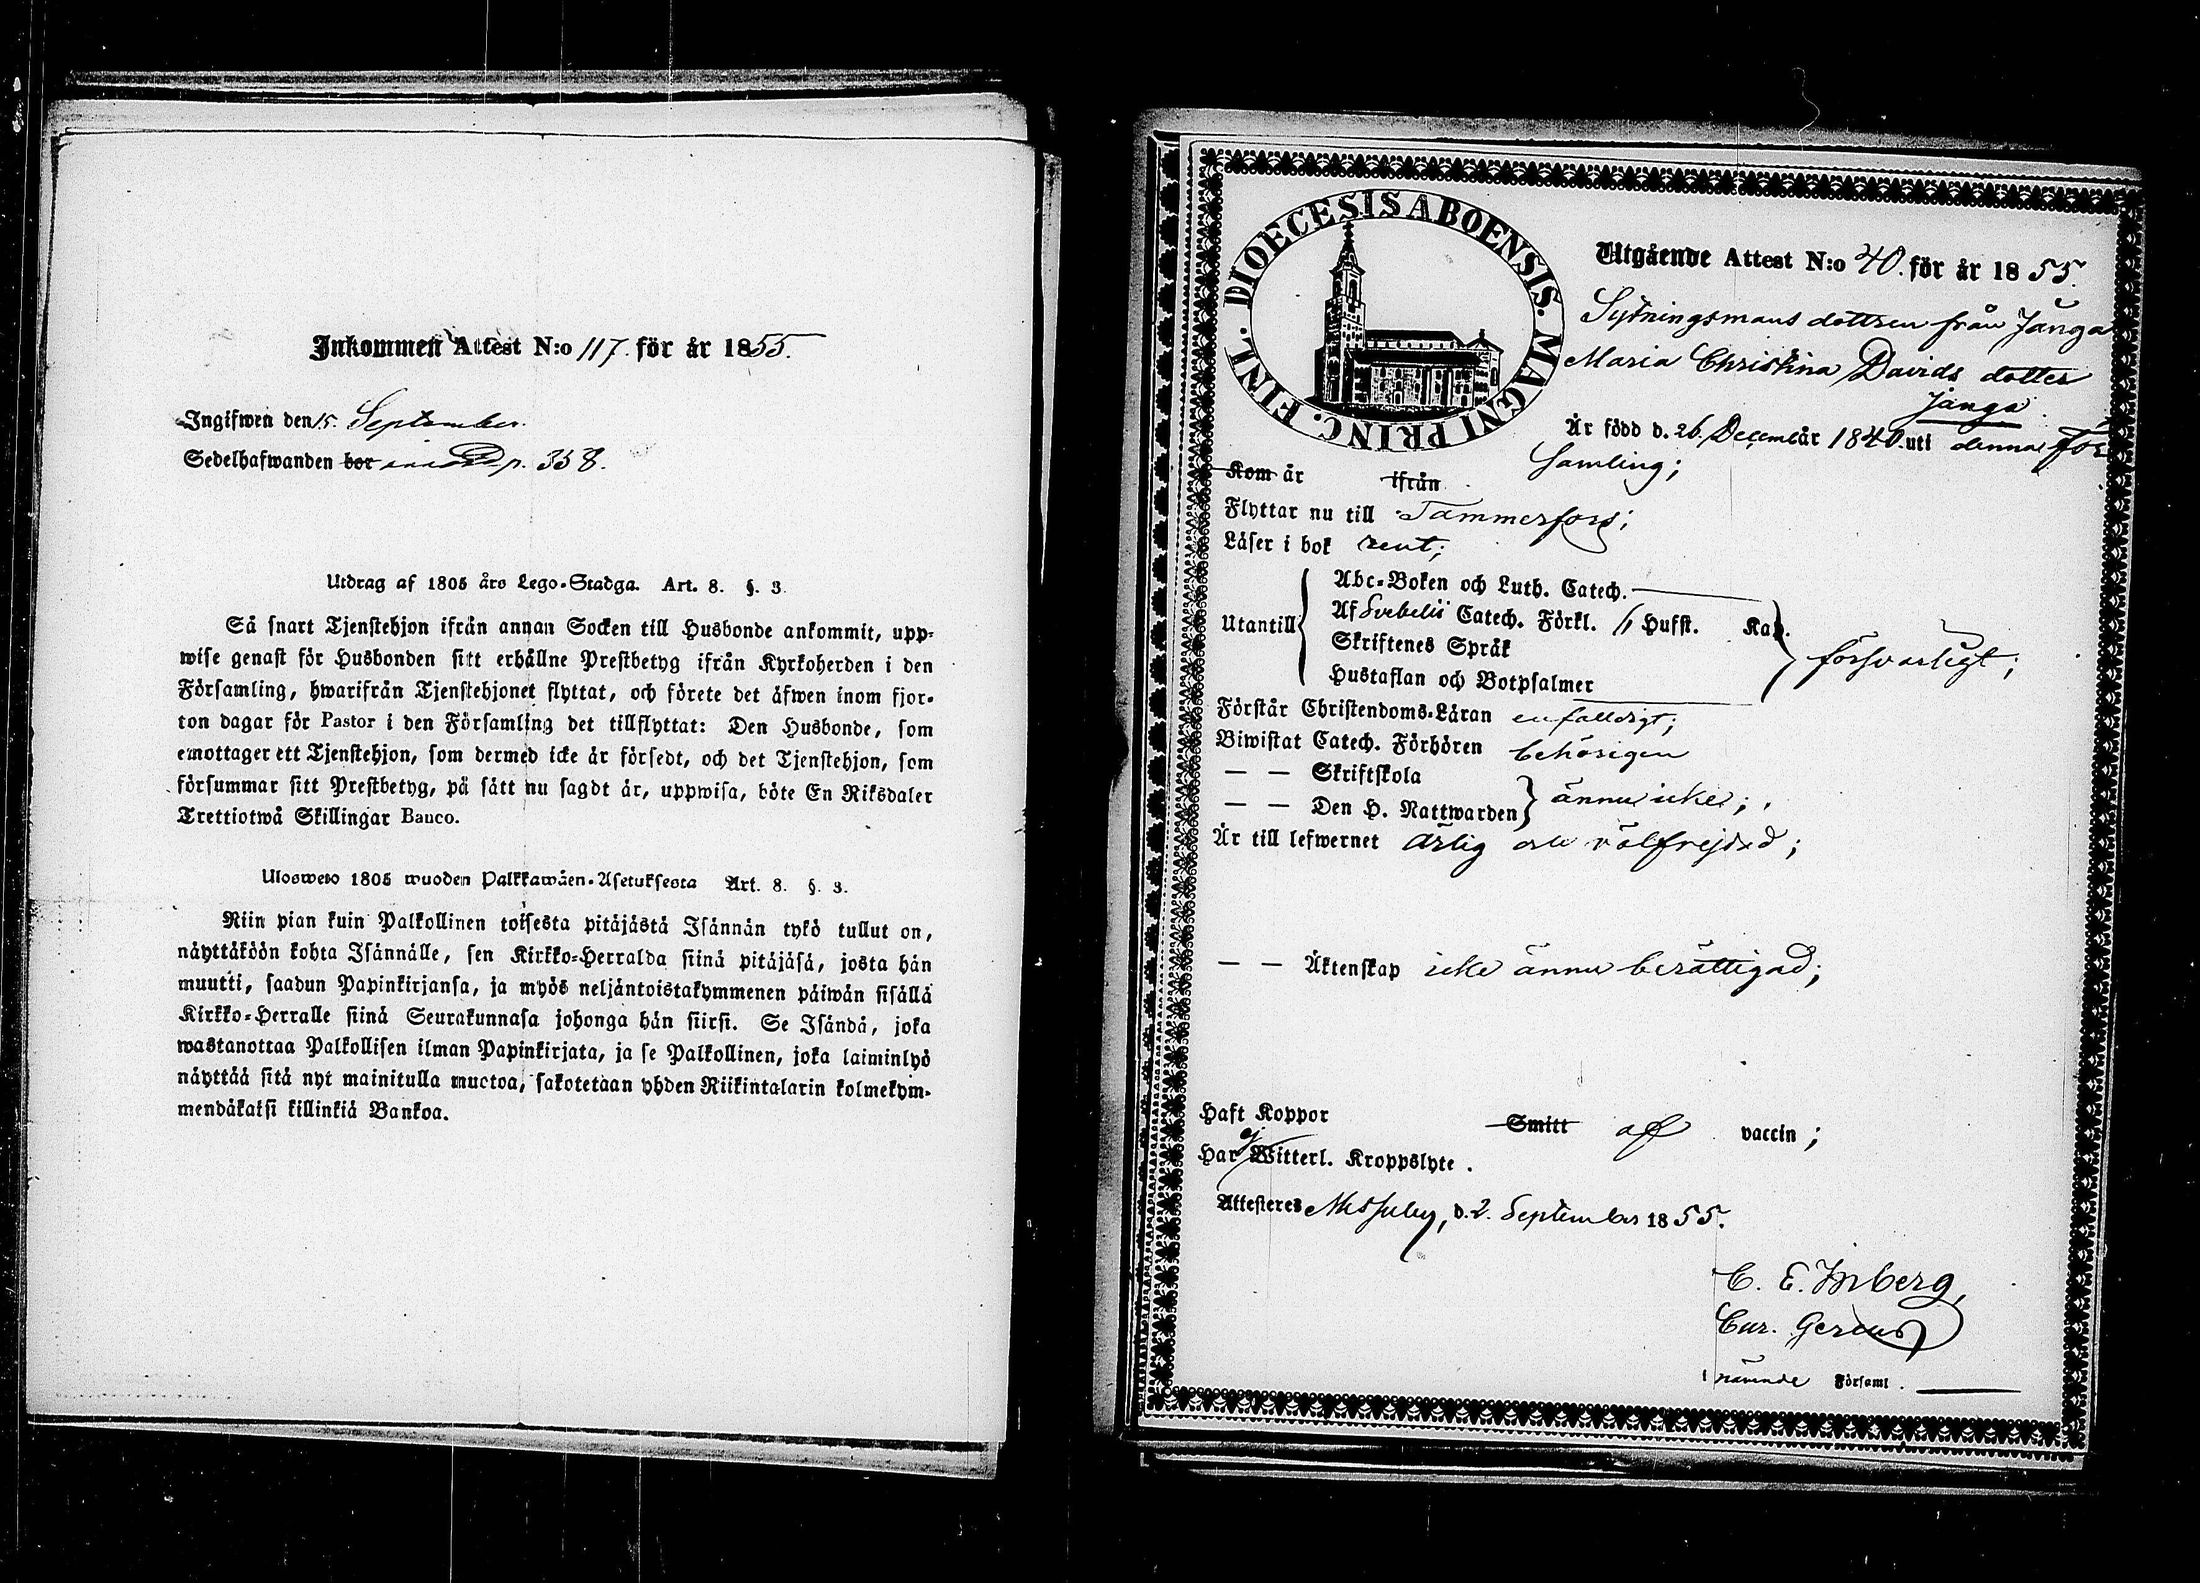 Inkommen Attest N:o 117. för år 1855.
Ingifwen den 15. September.
Sedelhafwanden bor p. 358.
Utdrag af 1805 års Lego-Stadga. Art. 8. §. 3.
Så snart Tjenstehjon ifrån annan Socken till Husbonde ankommit, upp-
wise genast för Husbonden sitt erhållne Prestbetyg ifrån Kyrkoherden i den
Församling, hwarifrån Tjenstehjonet flyttat, och förete det äfwen inom fjor-
ton dagar för Pastor i den Församling det tillflyttat: Den Husbonde, som
emottager ett Tjenstehjon, som dermed icke är försedt, och det Tjenstehjon, som
försummar sitt Prestbetyg, på sätt nu sagdt är, uppwisa, böte En Riksdaler
Trettiotwå Skillingar Banco.
Ulosweto 1805 wuoden Palkkawäen-Asetuksesta Art. 8. §. 3.
Niin pian kuin Palkollinen toisesta pitäjästä Isännän tykö tullut on,
näyttäköön kohta Isännälle, sen Kirkko-Herralda siinä pitäjäsä, josta hän
muutti, saadun Papinkirjansa, ja myös neljäntoistakymmenen päiwän sisällä
Kirkko-Herralle siinä Seurakunnasa johonga hän siirsi. Se Isändä, joka
wastanottaa Palkollisen ilman Papinkirjata, ja se Palkollinen, joka laiminlyö
näyttää sitä nyt mainitulla muotoa, sakotetaan yhden Riikintalarin kolmekym-
mendäkaksi killinkiä Bankoa.
DIOECESIS ABOENSIS. MAGNI PRINC. FINL.
Utgående Attest N:o 40. för år 1855.
Sytningsmans dottren från Janga
Maria Christina Davids dotter
Janga
Är född d. 26. Decem år 1840. uti denna För
samling;
Kom år ifrån
Flyttar nu till Tammerfors;
Läser i bok rent;
Abc-Boken och Luth. Catech.
Utantill Af Svebelii Catech. Förkl. Hufst. Kap. försvarligt;
Skriftenes Språk
Hustaflan och Botpsalmer
Förstår Christendoms-Läran enfalldigt;
Biwistat Catech. Förhören behörigen
— — Skriftskola
— — Den H. Nattwarden ännu icke;
Är till lefwernet ärlig och välfrejdad;
— — Äktenskap icke ännu berättigad;
Haft Koppor Smitt af vaccin;
Har ej Witterl. Kroppslyte.
Attesteres Messuby, d. 2. September 1855.
C. E. Inberg,
Cur. Gerens
i närvnde Församl.